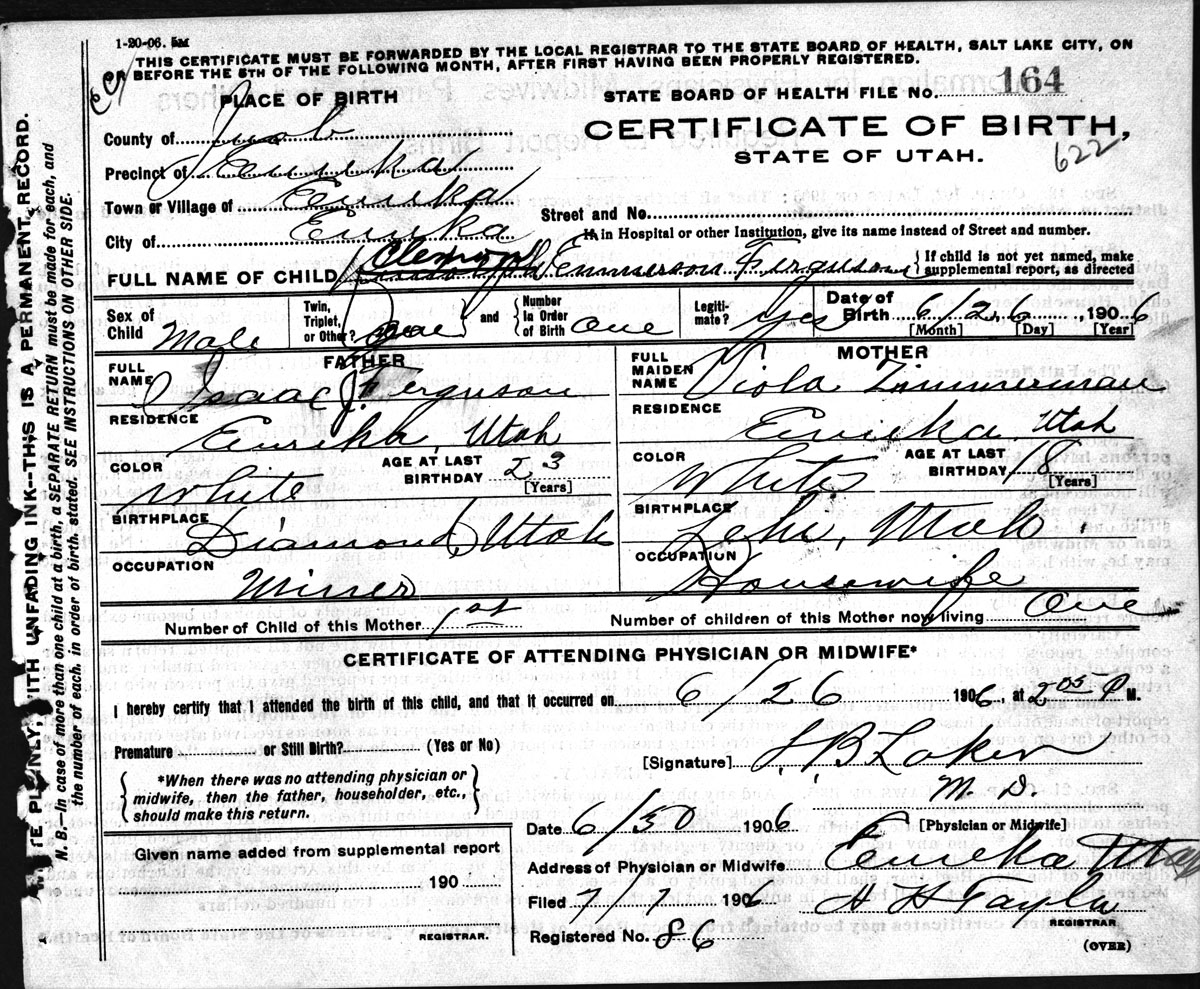 1-20-06. 5M
THIS CERTIFICATE MUST BE FORWARDED BY THE LOCAL REGISTRAR TO THE STATE BOARD OF HEALTH, SALT LAKE CITY, ON
OR BEFORE THE 5TH OF THE FOLLOWING MONTH, AFTER FIRST HAVING BEEN PROPERLY REGISTERED.
PLACE OF BIRTH
STATE BOARD OF HEALTH FILE NO. 164
County of Juab
CERTIFICATE OF BIRTH,
STATE OF UTAH.
622
Precinct of Eureka
Town or Village of Eureka
Street and No.
City of Eureka
If in Hospital or other Institution, give its name instead of Street and number.
FULL NAME OF CHILD Emmerson Ferguson
If child is not yet named, make
supplemental report, as directed
Sex of Child Male
Twin, Triplet, or Other? One
and
Number In Order of Birth One
Legitimate? Yes
Date of Birth 6/26, 1906
[Month] [Day] [Year]
FATHER
FULL NAME Isaac J. Ferguson
RESIDENCE Eureka, Utah
COLOR White
AGE AT LAST BIRTHDAY 23 [Years]
BIRTHPLACE Diamond, Utah
OCCUPATION Miner
MOTHER
FULL MAIDEN NAME Viola Zimmerman
RESIDENCE Eureka, Utah
COLOR White
AGE AT LAST BIRTHDAY 18 [Years]
BIRTHPLACE Lehi, Utah
OCCUPATION Housewife
Number of Child of this Mother 1st
Number of children of this Mother now living One
CERTIFICATE OF ATTENDING PHYSICIAN OR MIDWIFE*
I hereby certify that I attended the birth of this child, and that it occurred on 6/26 1906, at 2 05 P M.
Premature or Still Birth? (Yes or No)
[Signature]
M. D.
[Physician or Midwife]
*When there was no attending physician or
midwife, then the father, householder, etc.,
should make this return.
Date 6/30 1906
Address of Physician or Midwife Eureka Utah
Given name added from supplemental report
190
REGISTRAR.
Filed 7/7 1906
H H Taylor
REGISTRAR
Registered No. 86
(OVER)
WRITE PLAINLY, WITH UNFADING INK—THIS IS A PERMANENT RECORD.
N. B.—In case of more than one child at a birth, a SEPARATE RETURN must be made for each, and
the number of each, in order of birth, stated. SEE INSTRUCTIONS ON OTHER SIDE.